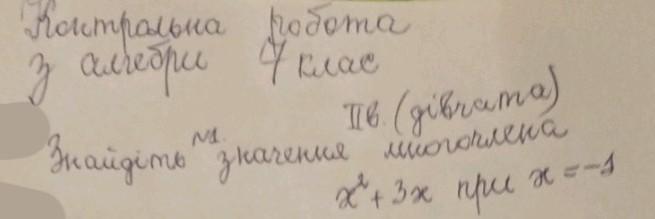 Контрольна робота
з алгебри 7 клас
ІІв. (дівчата)
№1.
Знайдіть значення многочлена
x² + 3x при x = -1